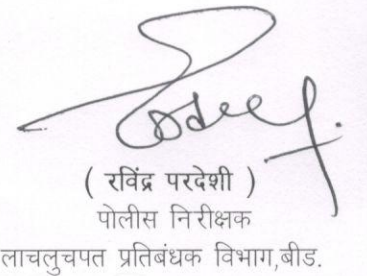 ( रविंद्र परदेशी )
पोलीस निरीक्षक
लाचलुचपत प्रतिबंधक विभाग,बीड.